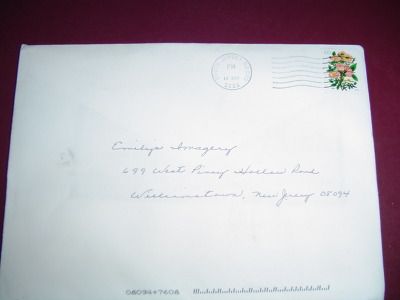 PM
Emily's Imagery
699 West Piney Hollow Road
Williamstown, New Jersey 08094
08094+7608